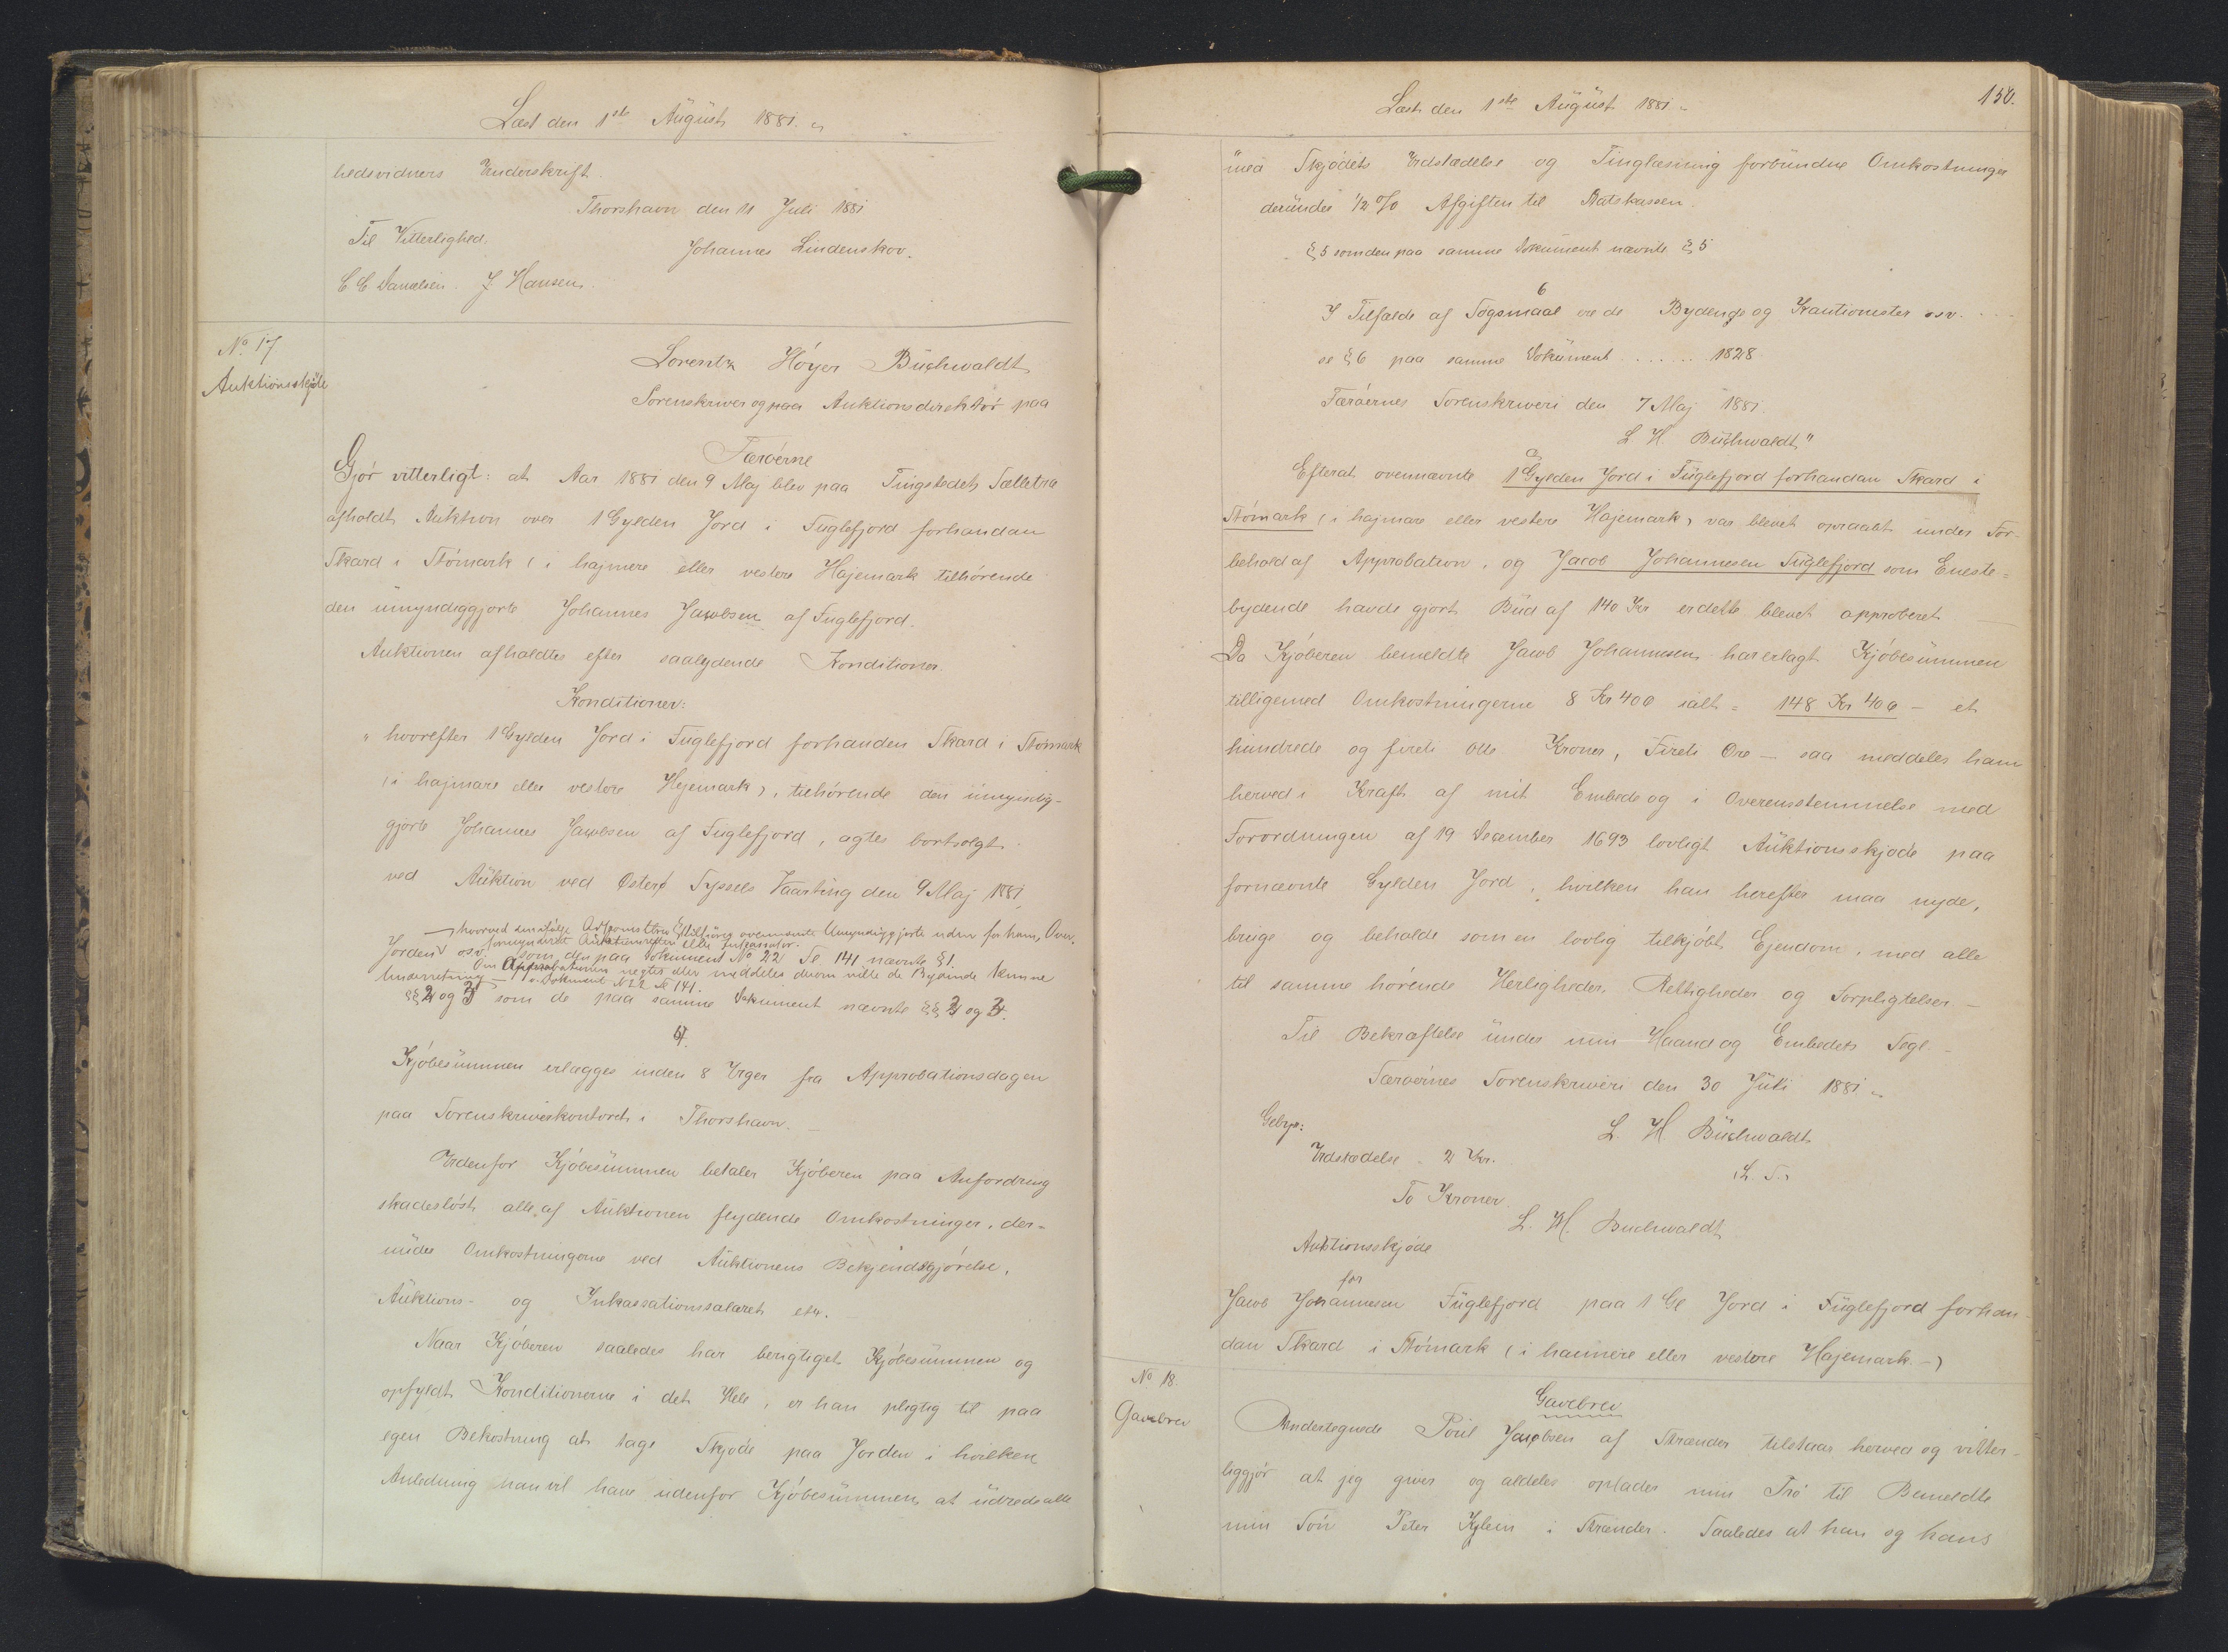 Læst den 1ste August 1881.
hedsvidners Underskrift.
Thorshavn den 11 Juli 1881
Til Vitterlighed.
Johannes Lindenskov.
C C Danielsen. J Hansen.
No 17
Auktionsskjøde
Lorentz Höyer Buchwaldt
Sorenskriver og paa Auktionsdirektør paa
Færøerne
Gjør vitterligt: at Aar 1881 den 9 Maj blev paa Tingstedet Sælletræ
afholdt Auktion over 1 Gylden Jord i Fuglefjord forhandan
Skard i Stömark (i hajmere eller vestere Hajemark tilhørende
den umyndiggjorte Johannes Jacobsen af Fuglefjord.
Auktionen afholdtes efter saalydende Konditioner.
Konditioner:
" hvorefter 1 Gylden Jord i Fuglefjord forhanden Skard i Stömark
(i hajmare eller vestere Hejemark), tilhørende den umyndig-
gjorte Johannes Jacobsen af Fuglefjord, agtes bortsolgt
ved Auktion ved Østerø Syssels Vaarting den 9 Maj 1881
Jorden osv. som den paa Dokument No 22 Se 141 nævnte § 1.
Om Approbationen negtes eller meddeles derom ville de Bydende kunne
Underretning v. Dokument N 22 Se 141.
§§ 2 og 3 som de paa samme Dokument nævnte §§ 2 og 3.
4.
Kjøbesummen erlægges inden 8 Uger fra Approbationsdagen
paa Sorenskriverkontoret i Thorshavn. —
Udenfor Kjøbesummen betaler Kjøberen paa Anfordring
skadesløst alle af Auktionen flydende Omkostninger, der-
under Omkostningerne ved Auktionens Bekjendtgjørelse,
Auktions- og Inkassationssalaret etc.
Naar Kjøberen saaledes har berigtiget Kjøbesummen og
opfyldt Konditionerne i det Hele, er han pligtig til paa
egen Bekostning at tage Skjøde paa Jorden i hvilken
Anledning han vil have udenfor Kjøbesummen at udrede alle
Læst den 1ste August 1881.
150.
"med Skjødets Udstædelse og Tinglæsning forbundne Omkostninger
derunder 1/2 % Afgiften til Statskassen.
§ 5 som den paa samme Dokument nævnte § 5
6
I Tilfælde af Søgsmaal ere de Bydende og Kautionister osv. ...
se § 6 paa samme Dokument ...... 1828
Færøernes Sorenskriveri den 7 Maj 1881.
L. H. Buchwaldt"
Efterat ovennævnte 1 Gylden Jord i Fuglefjord forhandan Skard i
Stömark (i hajmare eller vestere Hajemark) var blevet opraabt under For-
behold af Approbation, og Jacob Johannesen Fuglefjord som Eneste-
bydende havde gjort Bud af 140 Kr er dette blevet approberet —
Da Kjøberen bemeldte Jacob Johannesen har erlagt Kjøbesummen
tilligemed Omkostningerne 8 Kr 40 Ø ialt = 148 Kr 40 Ø — et
hundrede og firti otte Kroner, Firti Øre — saa meddeles ham
herved i Kraft af mit Embede og i Overensstemmelse med
Forordningen af 19 December 1693 lovligt Auktionsskjøde paa
fornævnte Gylden Jord, hvilken han herefter maa nyde,
bruge og beholde som en lovlig tilkjøbt Ejendom, med alle
til samme hørende Herligheder, Rettigheder og Forpligtelser —
Til Bekræftelse under min Haand og Embedets Segl. —
Færøernes Sorenskriveri den 30 Juli 1881.
Gebyr:
L. H. Buchwaldt
Udstædelse . 2 Kr.
(L. S.)
To Kroner.
L. H. Buchwaldt
Auktionsskjøde
for
Jacob Johannesen Fuglefjord paa 1 Gl Jord i Fuglefjord forhan-
dan Skard i Stömark (i hannere eller vestere Hajemark. —)
No 18.
Gavebrev
Gavebrev
Undertegnede Poul Jacobsen af Strænder tilstaar herved og vitter-
liggjør at jeg giver og aldeles oplader min Trö til Bemeldte
min Søn Peter Kylein i Strænder. Saaledes at han og hans